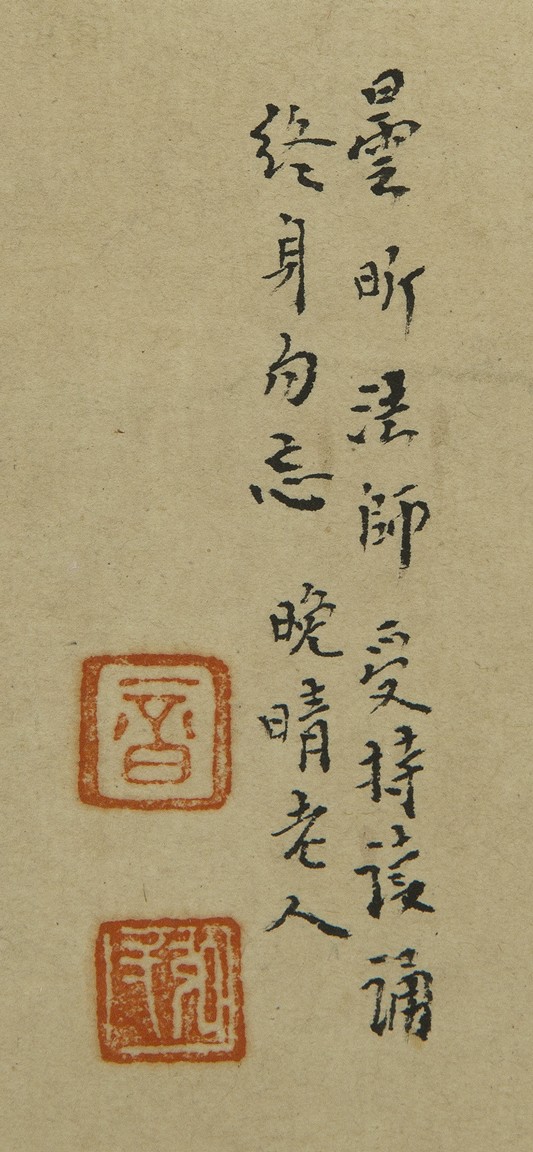 曇昕法師受持讀誦
終身勿忘 晚晴老人
音
弘一